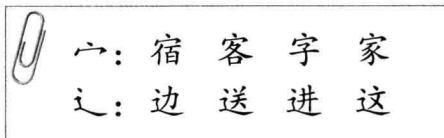 宀：宿 客 字 家
辶：边 送 进 这